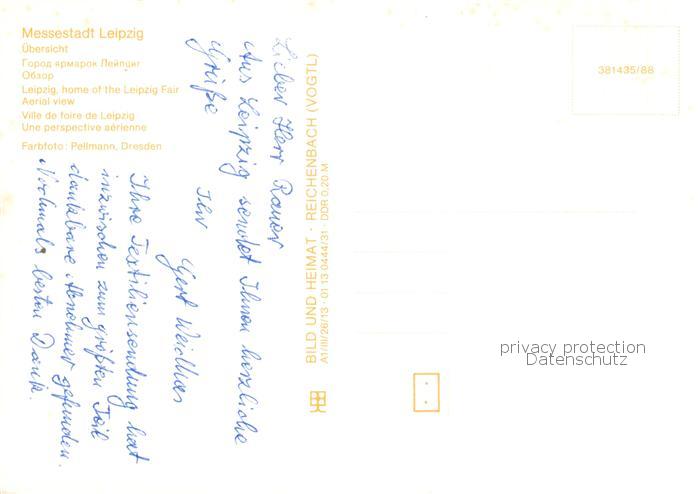 Messestadt Leipzig
Übersicht
Город ярмарок Лейпциг
Обзор
Leipzig, home of the Leipzig Fair
Aerial view
Ville de foire de Leipzig
Une perspective aérienne
Farbfoto: Pellmann, Dresden
Lieber Herr Rauer
Aus Leipzig sendet Ihnen herzliche
Grüße
Ihr
Gert
Ihre Textiliensendung hat
inzwischen zum größten Teil
dankbare Abnehmer gefunden.
Nochmals besten Dank.
BILD UND HEIMAT · REICHENBACH (VOGTL)
A1/III/26/13 · 01 13 0444/31 · DDR 0,20 M
381435/88
privacy protection
Datenschutz